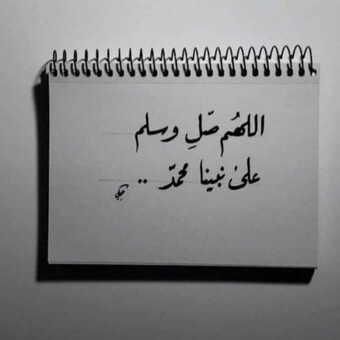 اللهُم صّلِ وسلم
على نبينا محمدّ ..